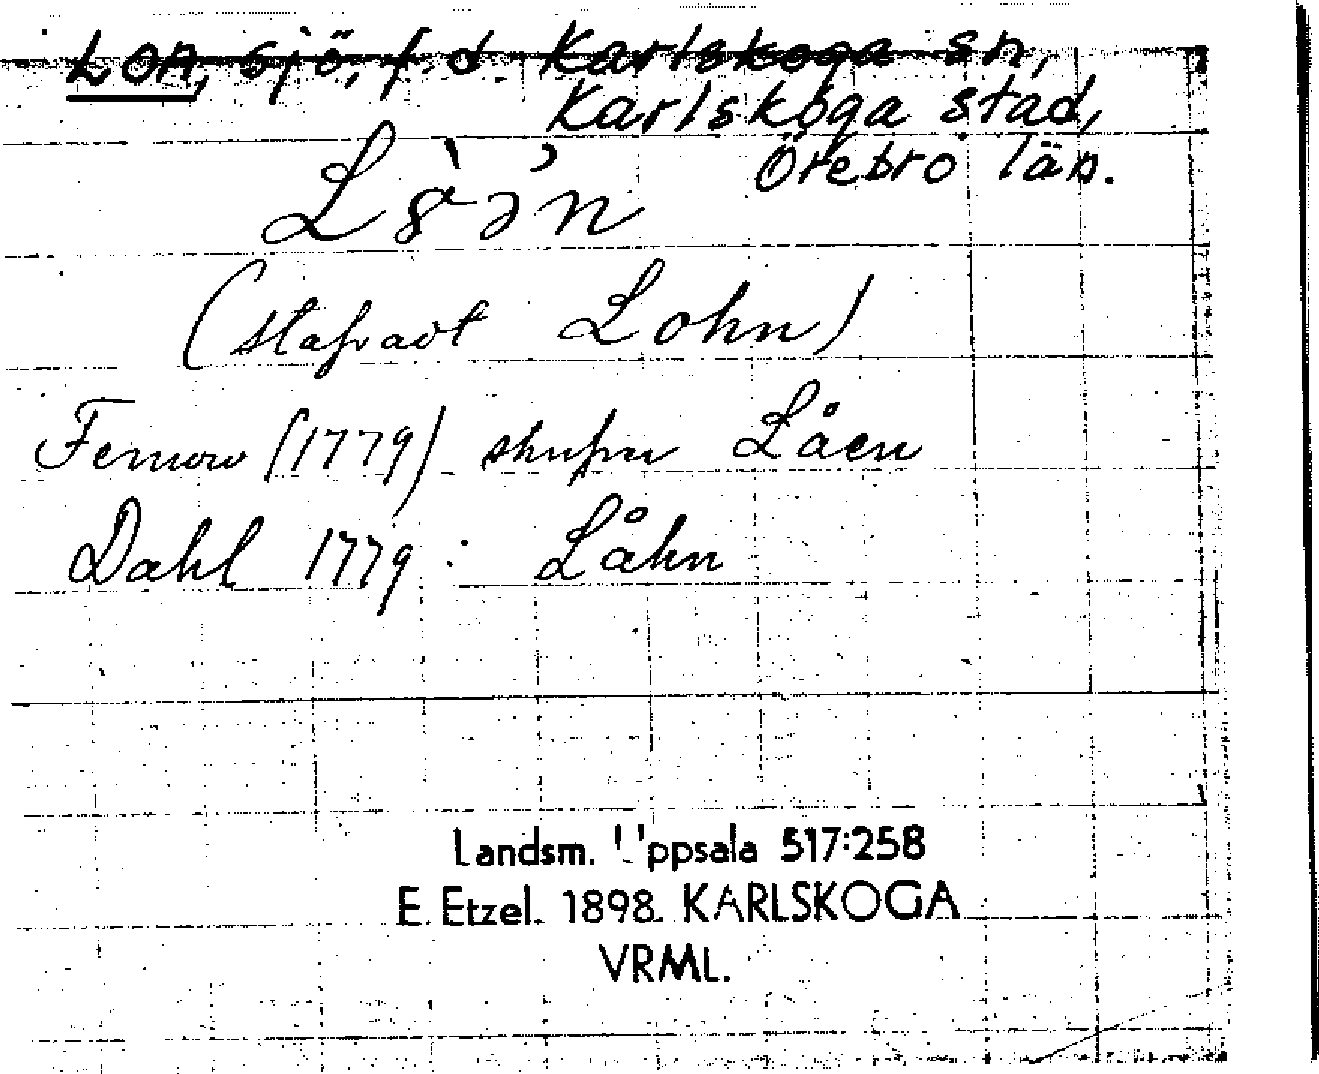 Lon, sjö, f.d. Karlskoga sn,
Karlskoga stad,
Örebro län.
(stafvadt Lohn)
Fernow (1779) skrifver Låen
Dahl 1779: Låhn
Landsm. Uppsala 517:258
E. Etzel. 1898. KARLSKOGA
VRML.